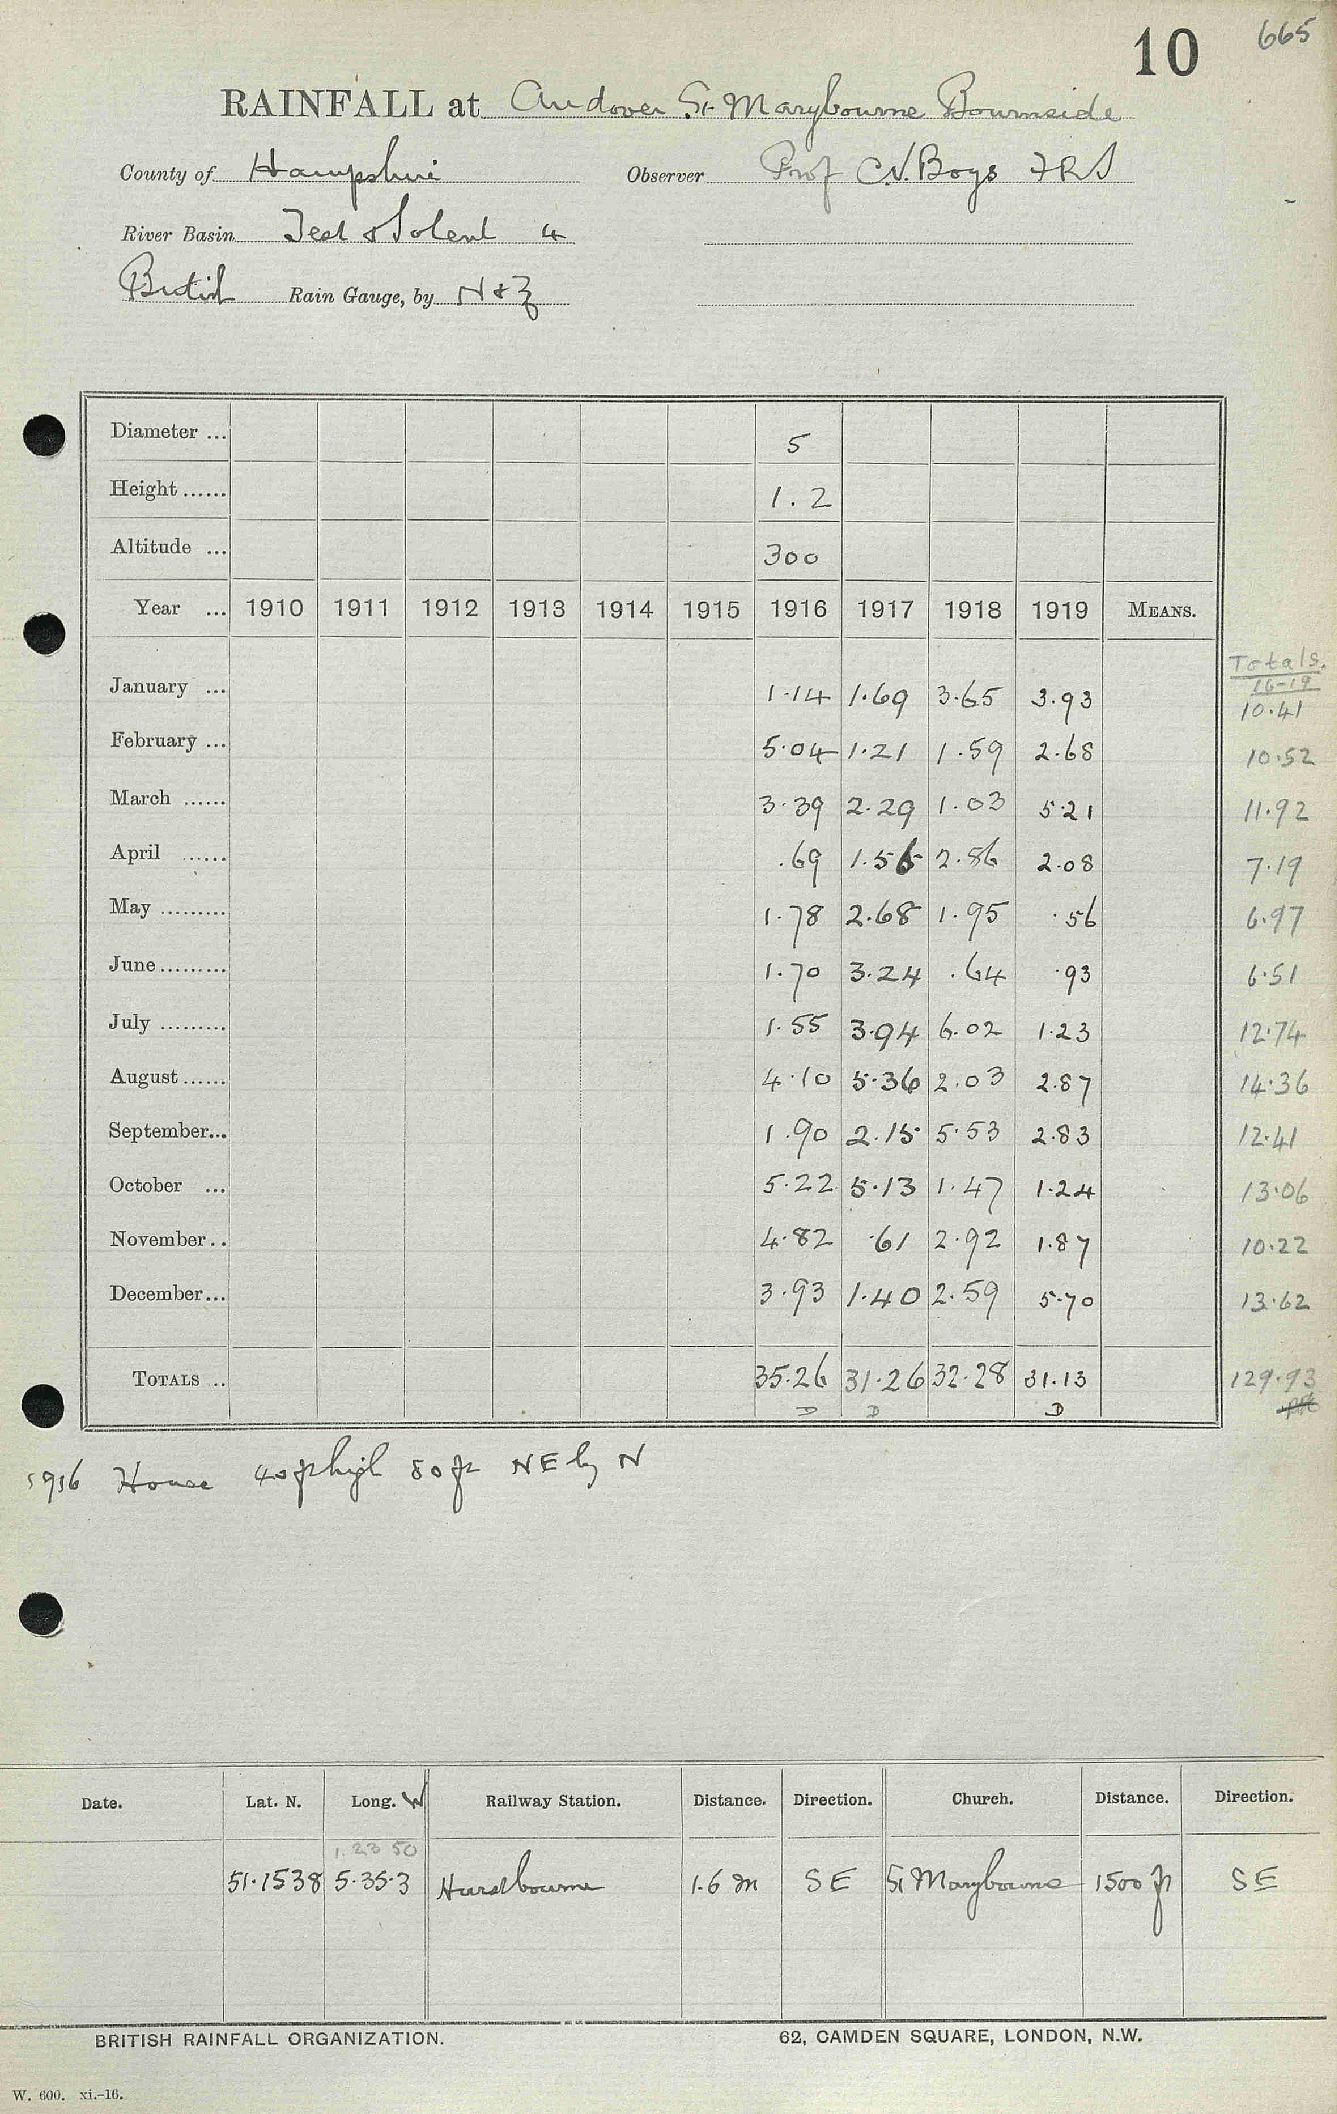 10 665
RAINFALL at Andover St Marybourne Bourneside
County of Hampshire Observer Prof C.V. Boys FRS
River Basin Test & Solent 4
British Rain Gauge, by N & Z
Diameter ... 5
Height ...... 1.2
Altitude ... 300
Year ... 1910 1911 1912 1913 1914 1915 1916 1917 1918 1919 MEANS.
Totals.
16-19
January ... 1.14 1.69 3.65 3.93 10.41
February ... 5.04 1.21 1.59 2.68 10.52
March ...... 3.39 2.29 1.03 5.21 11.92
April ...... .69 1.56 2.86 2.08 7.19
May ......... 1.78 2.68 1.95 .56 6.97
June ......... 1.70 3.24 .64 .93 6.51
July ......... 1.55 3.94 6.02 1.23 12.74
August ...... 4.10 5.36 2.03 2.87 14.36
September... 1.90 2.15 5.53 2.83 12.41
October ... 5.22 5.13 1.47 1.24 13.06
November .. 4.82 .61 2.92 1.87 10.22
December... 3.93 1.40 2.59 5.70 13.62
TOTALS .. 35.26 31.26 32.28 31.13 129.93
D D D
1916 House 40 ft high 80 ft NE by N
Date. Lat. N. Long. W Railway Station. Distance. Direction. Church. Distance. Direction.
1.23 50
51.1538 5.35.3 Hurstbourne 1.6 m SE St Marybourne 1500 ft SE
BRITISH RAINFALL ORGANIZATION. 62, CAMDEN SQUARE, LONDON, N.W.
W. 600. xi.-16.